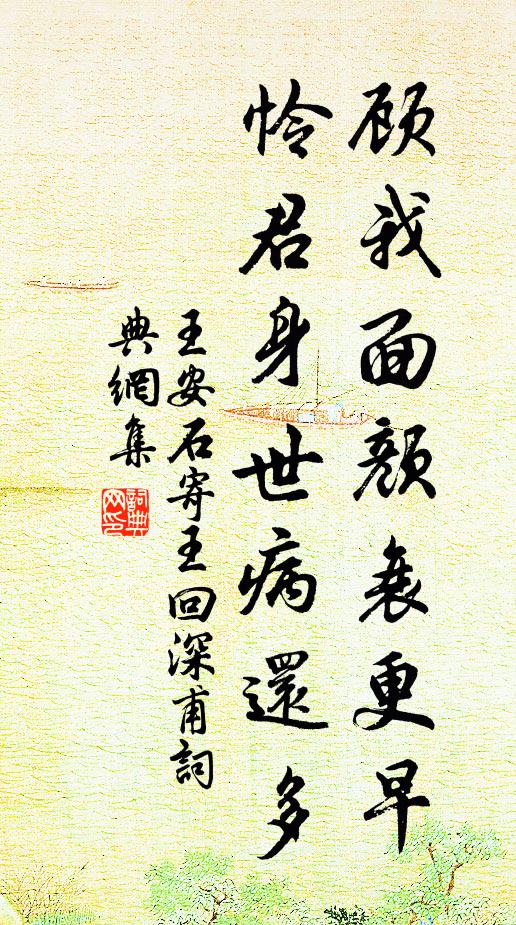 顾我面颜衰更早
怜君身世病還多
王安石寄王回深甫詞
典網集
詞典
网印